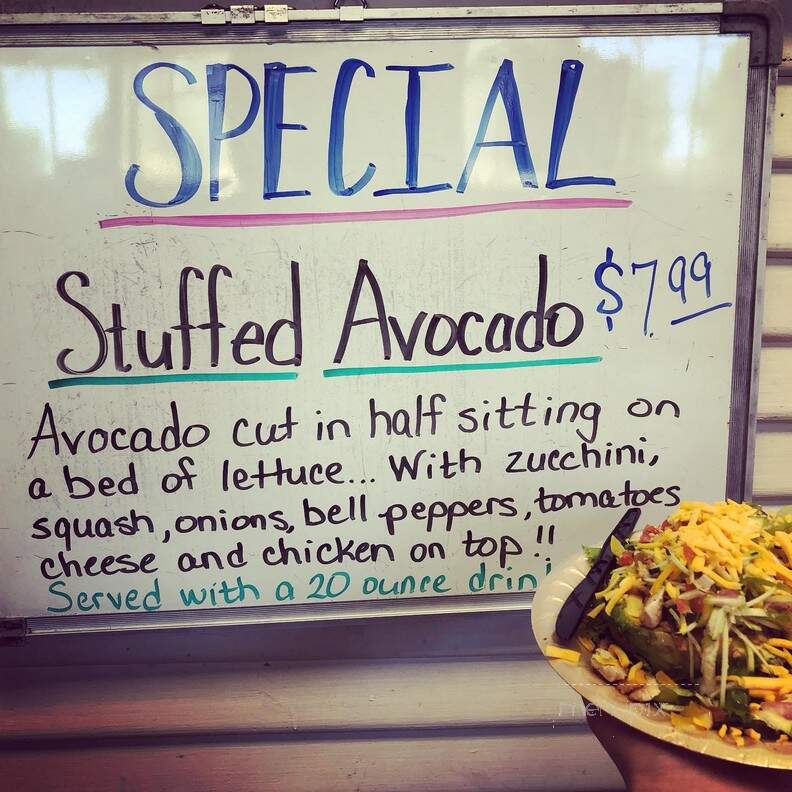 SPECIAL
Stuffed Avocado $7.99
Avocado cut in half sitting on
a bed of lettuce... With zucchini,
squash, onions, bell peppers, tomatoes
cheese and chicken on top!!
Served with a 20 ounce